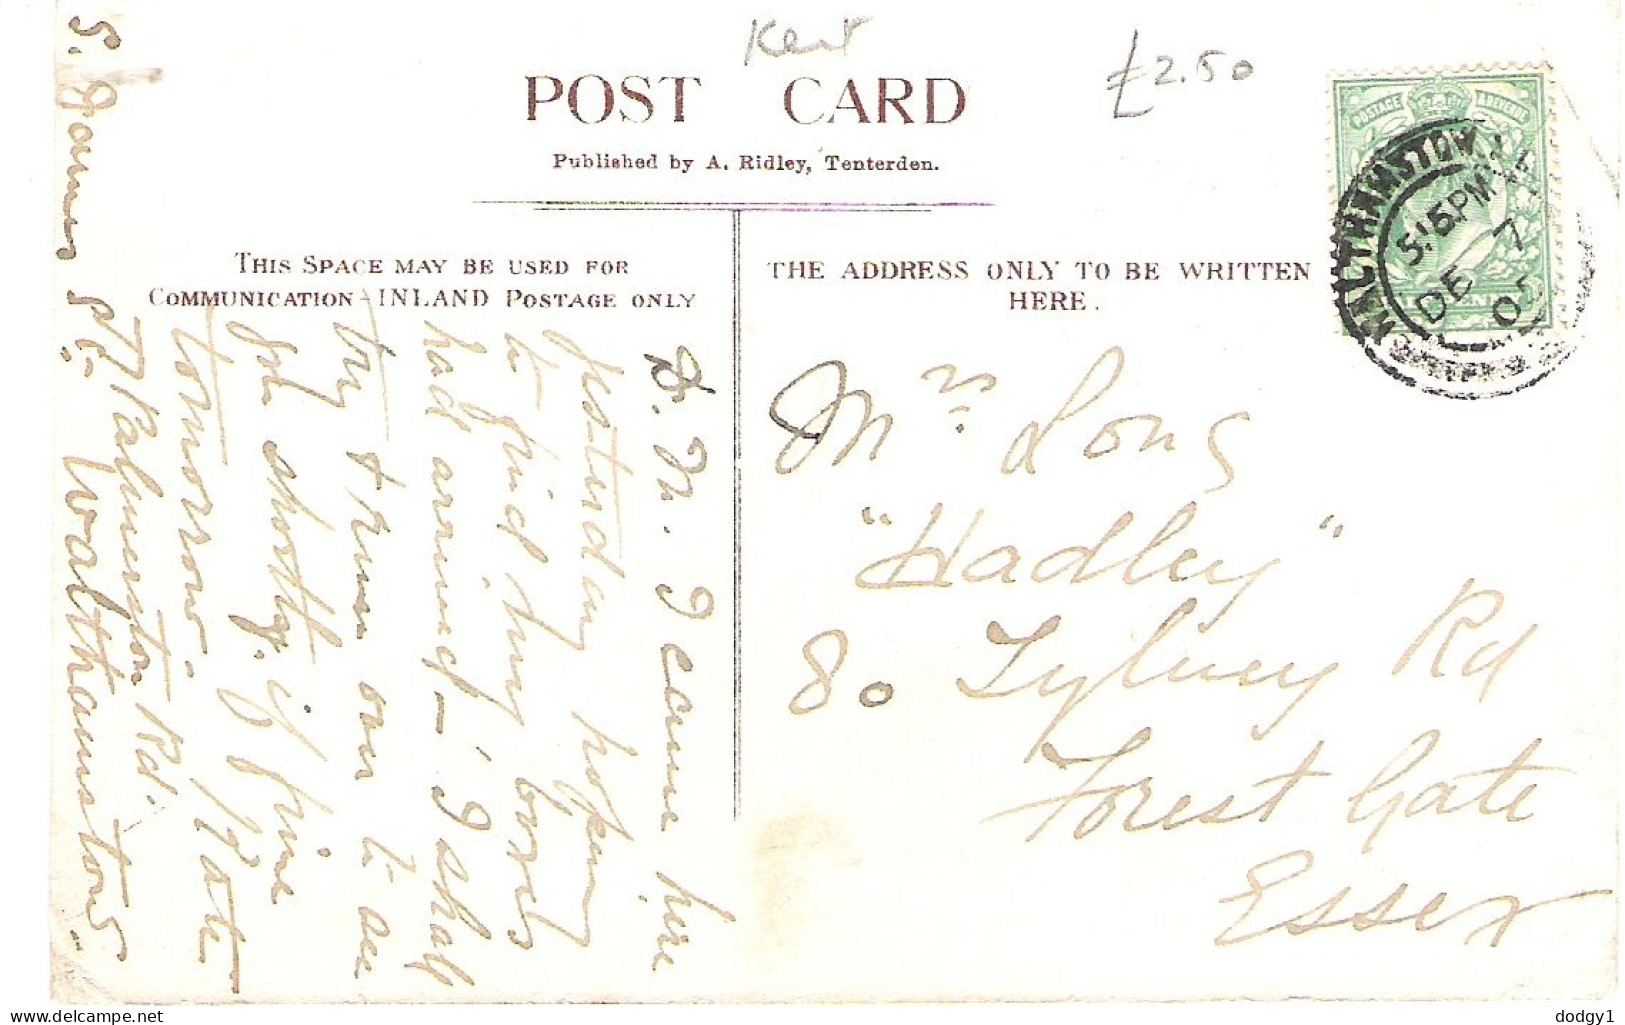 Kent
£2.50
POST CARD
Published by A. Ridley, Tenterden.
THIS SPACE MAY BE USED FOR
COMMUNICATION - INLAND POSTAGE ONLY
THE ADDRESS ONLY TO BE WRITTEN
HERE.
POSTAGE & REVENUE
WALTHAMSTOW
5.15PM
DE 7
05
D. M. I came here
yesterday hoping
to find my boxes
had arrived - I shall
try & run over to see
you shortly. if fine
tomorrow. Kate
Palmerston Rd.
Walthamstow.
Mrs. Long
"Hadley"
80 Sylney Rd
Forest Gate
Essex
dodgy1
https://www.delcampe.net